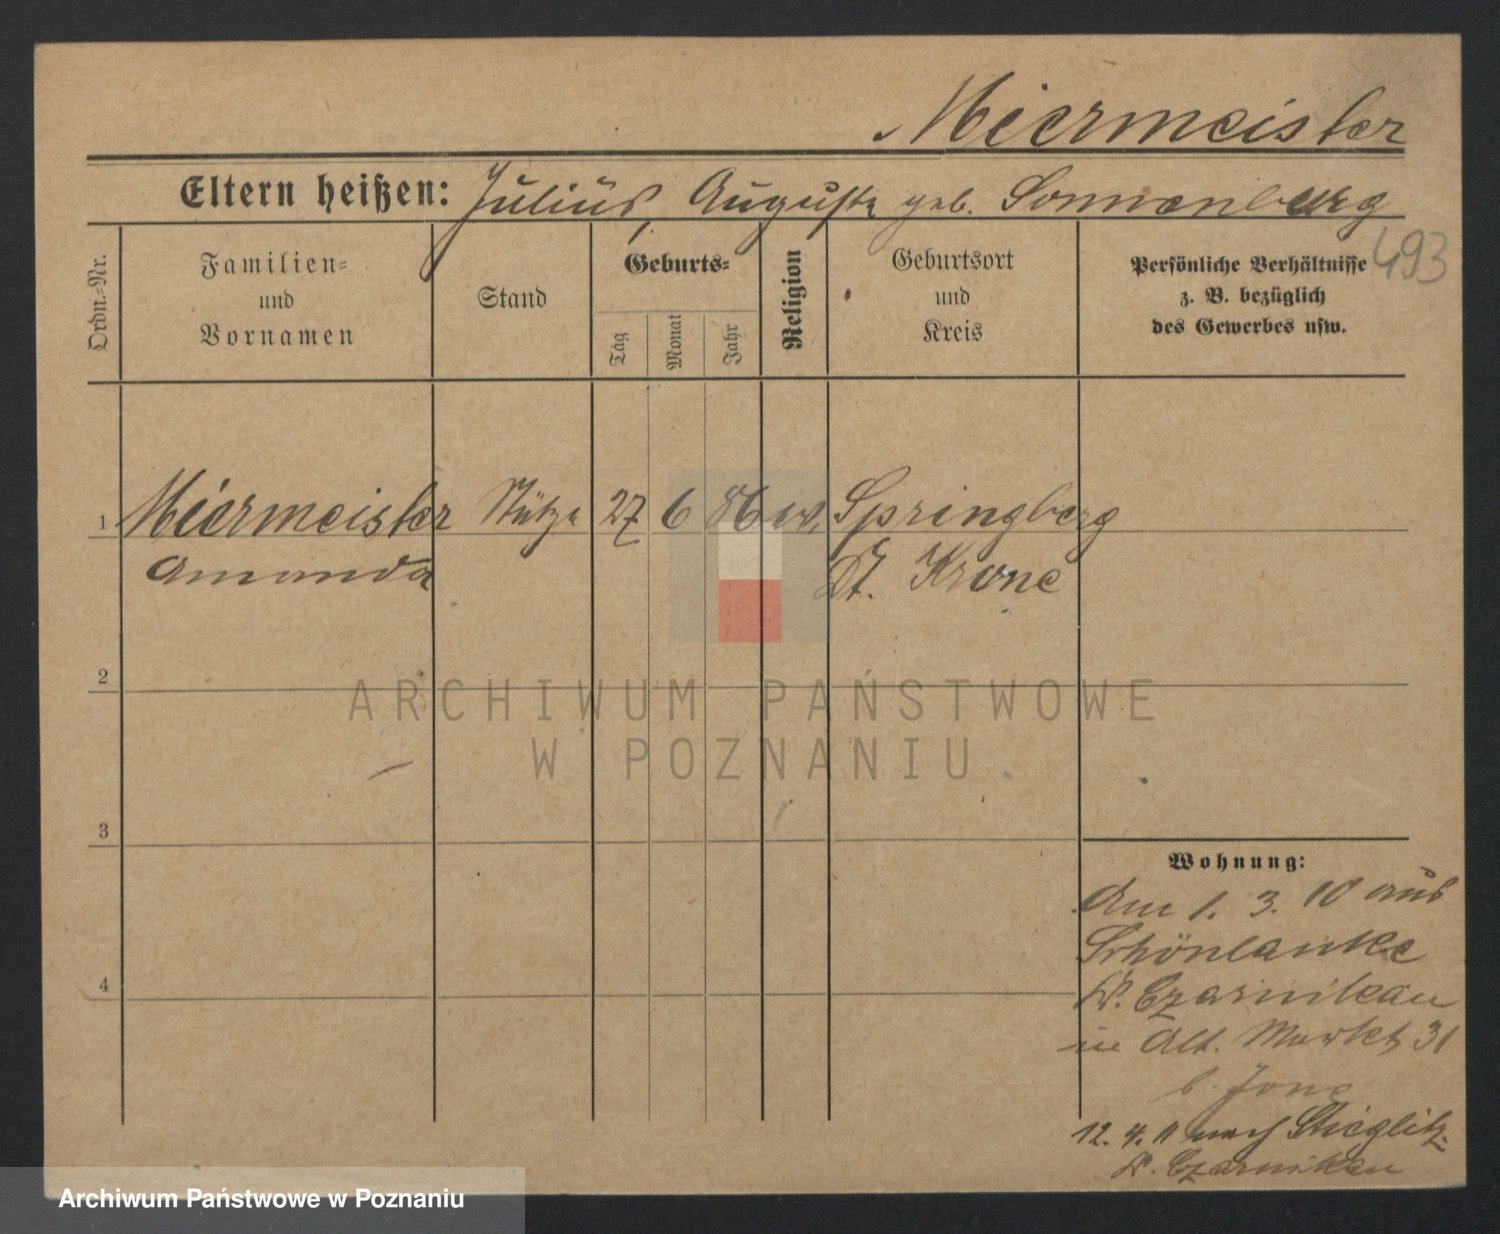 Miermeister
Eltern heißen: Julius, Auguste geb. Sonnenberg
493
Ordn.-Nr.
Familien-
und
Vornamen
Stand
Geburts-
Tag
Monat
Jahr
Religion
Geburtsort
und
Kreis
Persönliche Verhältnisse
z. B. bezüglich
des Gewerbes usw.
1 Miermeister Stütze 27 6 86 ev. Springberg
Amanda Dt. Krone
2
ARCHIWUM PAŃSTWOWE
W POZNANIU
3
Wohnung:
Am 1. 3. 10 aus
Schönlanke
Kr. Czarnikau
in Alt. Markt 31
b. Jone
4
12. 4. 11 nach Stieglitz
Kr. Czarnikau
Archiwum Państwowe w Poznaniu